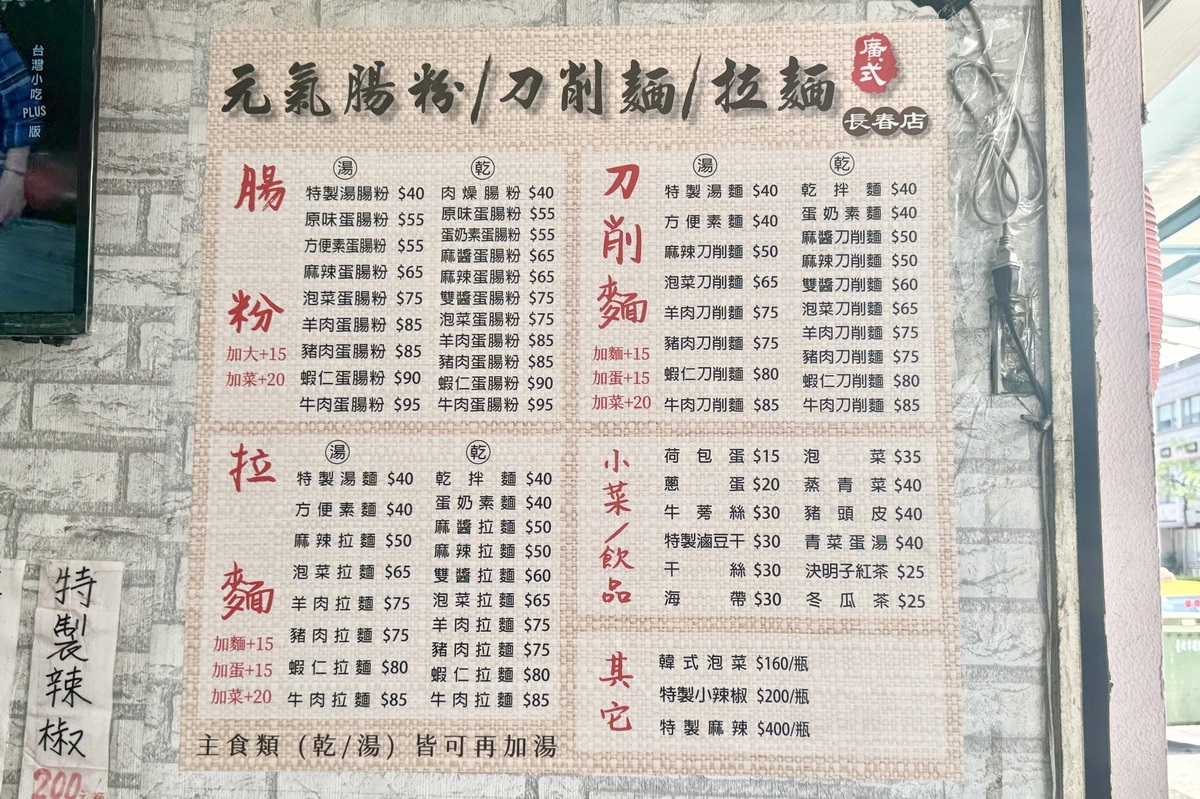 台灣小吃PLUS版
元氣腸粉/刀削麵/拉麵
廣式
長春店
腸粉
加大+15
加菜+20
湯
特製湯腸粉 $40
原味蛋腸粉 $55
方便素蛋腸粉 $55
麻辣蛋腸粉 $65
泡菜蛋腸粉 $75
羊肉蛋腸粉 $85
豬肉蛋腸粉 $85
蝦仁蛋腸粉 $90
牛肉蛋腸粉 $95
乾
肉燥腸粉 $40
原味蛋腸粉 $55
蛋奶素蛋腸粉 $55
麻醬蛋腸粉 $65
麻辣蛋腸粉 $65
雙醬蛋腸粉 $75
泡菜蛋腸粉 $75
羊肉蛋腸粉 $85
豬肉蛋腸粉 $85
蝦仁蛋腸粉 $90
牛肉蛋腸粉 $95
刀削麵
加麵+15
加蛋+15
加菜+20
湯
特製湯麵 $40
方便素麵 $40
麻辣刀削麵 $50
泡菜刀削麵 $65
羊肉刀削麵 $75
豬肉刀削麵 $75
蝦仁刀削麵 $80
牛肉刀削麵 $85
乾
乾拌麵 $40
蛋奶素麵 $40
麻醬刀削麵 $50
麻辣刀削麵 $50
雙醬刀削麵 $60
泡菜刀削麵 $65
羊肉刀削麵 $75
豬肉刀削麵 $75
蝦仁刀削麵 $80
牛肉刀削麵 $85
拉麵
加麵+15
加蛋+15
加菜+20
湯
特製湯麵 $40
方便素麵 $40
麻辣拉麵 $50
泡菜拉麵 $65
羊肉拉麵 $75
豬肉拉麵 $75
蝦仁拉麵 $80
牛肉拉麵 $85
乾
乾拌麵 $40
蛋奶素麵 $40
麻醬拉麵 $50
麻辣拉麵 $50
雙醬拉麵 $60
泡菜拉麵 $65
羊肉拉麵 $75
豬肉拉麵 $75
蝦仁拉麵 $80
牛肉拉麵 $85
主食類(乾/湯)皆可再加湯
小菜/飲品
荷包蛋 $15
蔥蛋 $20
牛蒡絲 $30
特製滷豆干 $30
干絲 $30
海帶 $30
泡菜 $35
蒸青菜 $40
豬頭皮 $40
青菜蛋湯 $40
決明子紅茶 $25
冬瓜茶 $25
其它
韓式泡菜 $160/瓶
特製小辣椒 $200/瓶
特製麻辣 $400/瓶
特製辣椒
200